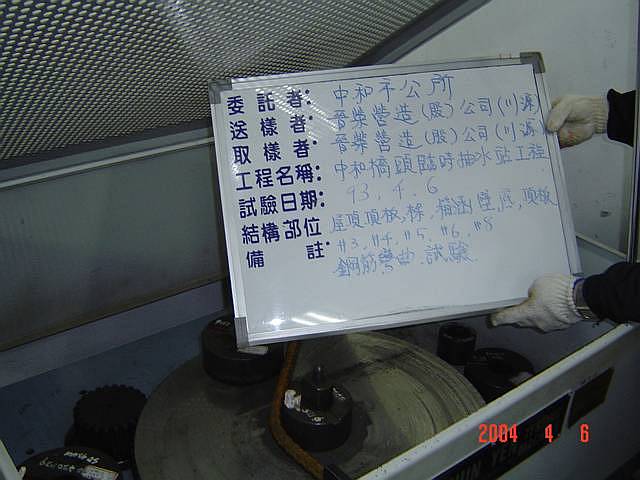 委託者: 中和市公所
送樣者: 晉燊營造(股)公司(川源)
取樣者: 晉燊營造(股)公司(川源)
工程名稱: 中和橋頭臨時抽水站工程
試驗日期: 93.4.6
結構部位: 屋頂頂板,樑,箱涵壁,底,頂板
備註: #3,#4,#5,#6,#8
鋼筋彎曲試驗
2004 4 6